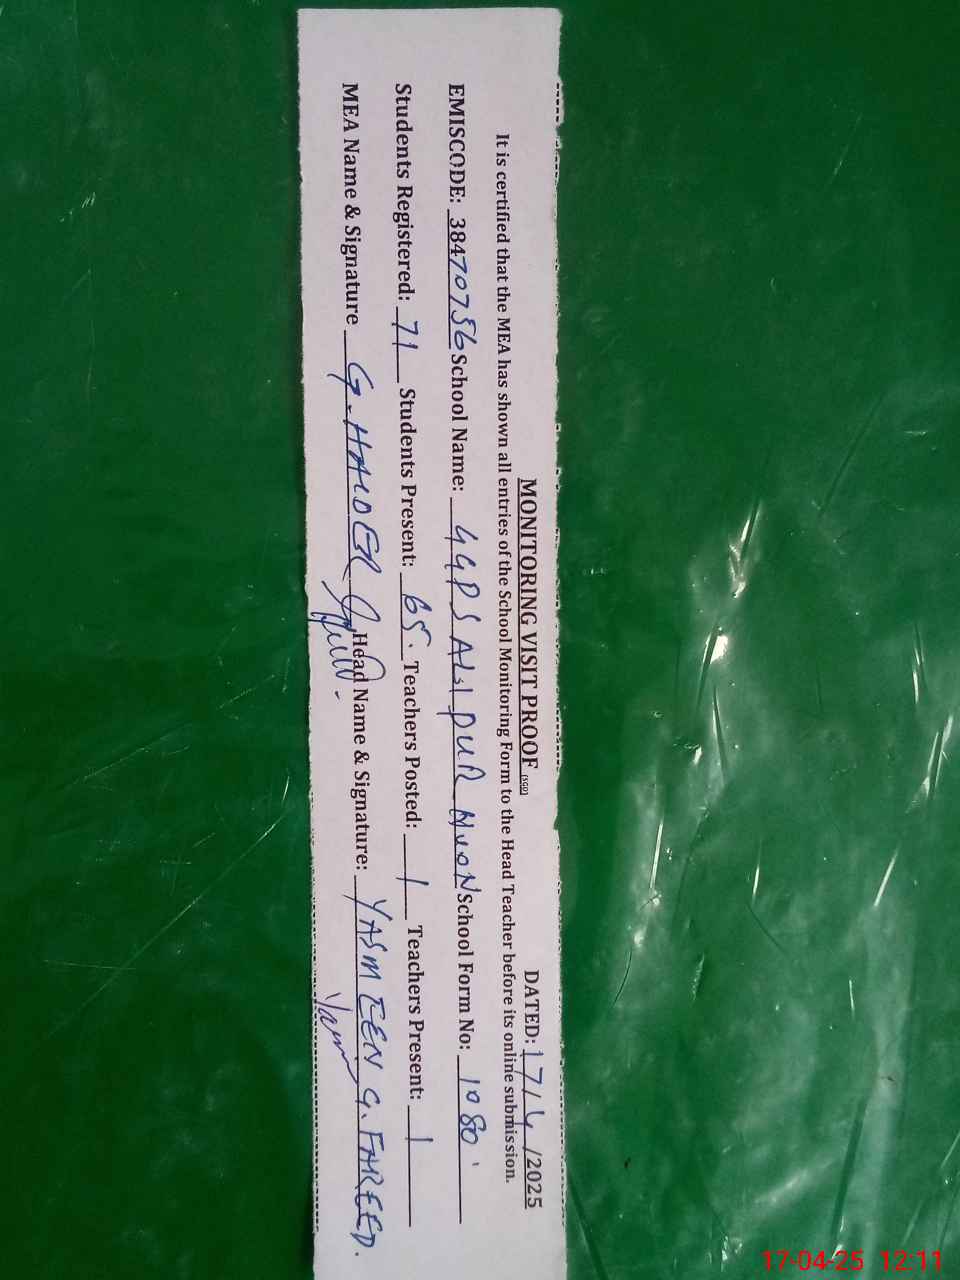 MONITORING VISIT PROOF (SGD) DATED: 17/4/2025
It is certified that the MEA has shown all entries of the School Monitoring Form to the Head Teacher before its online submission.
EMISCODE: 38470756 School Name: GGPS ALI PUR NUON School Form No: 1080
Students Registered: 71 Students Present: 65. Teachers Posted: 1 Teachers Present: 1
MEA Name & Signature G. HAIDER Head Name & Signature: YASMEEN G. FAREED.
17-04-25 12:11